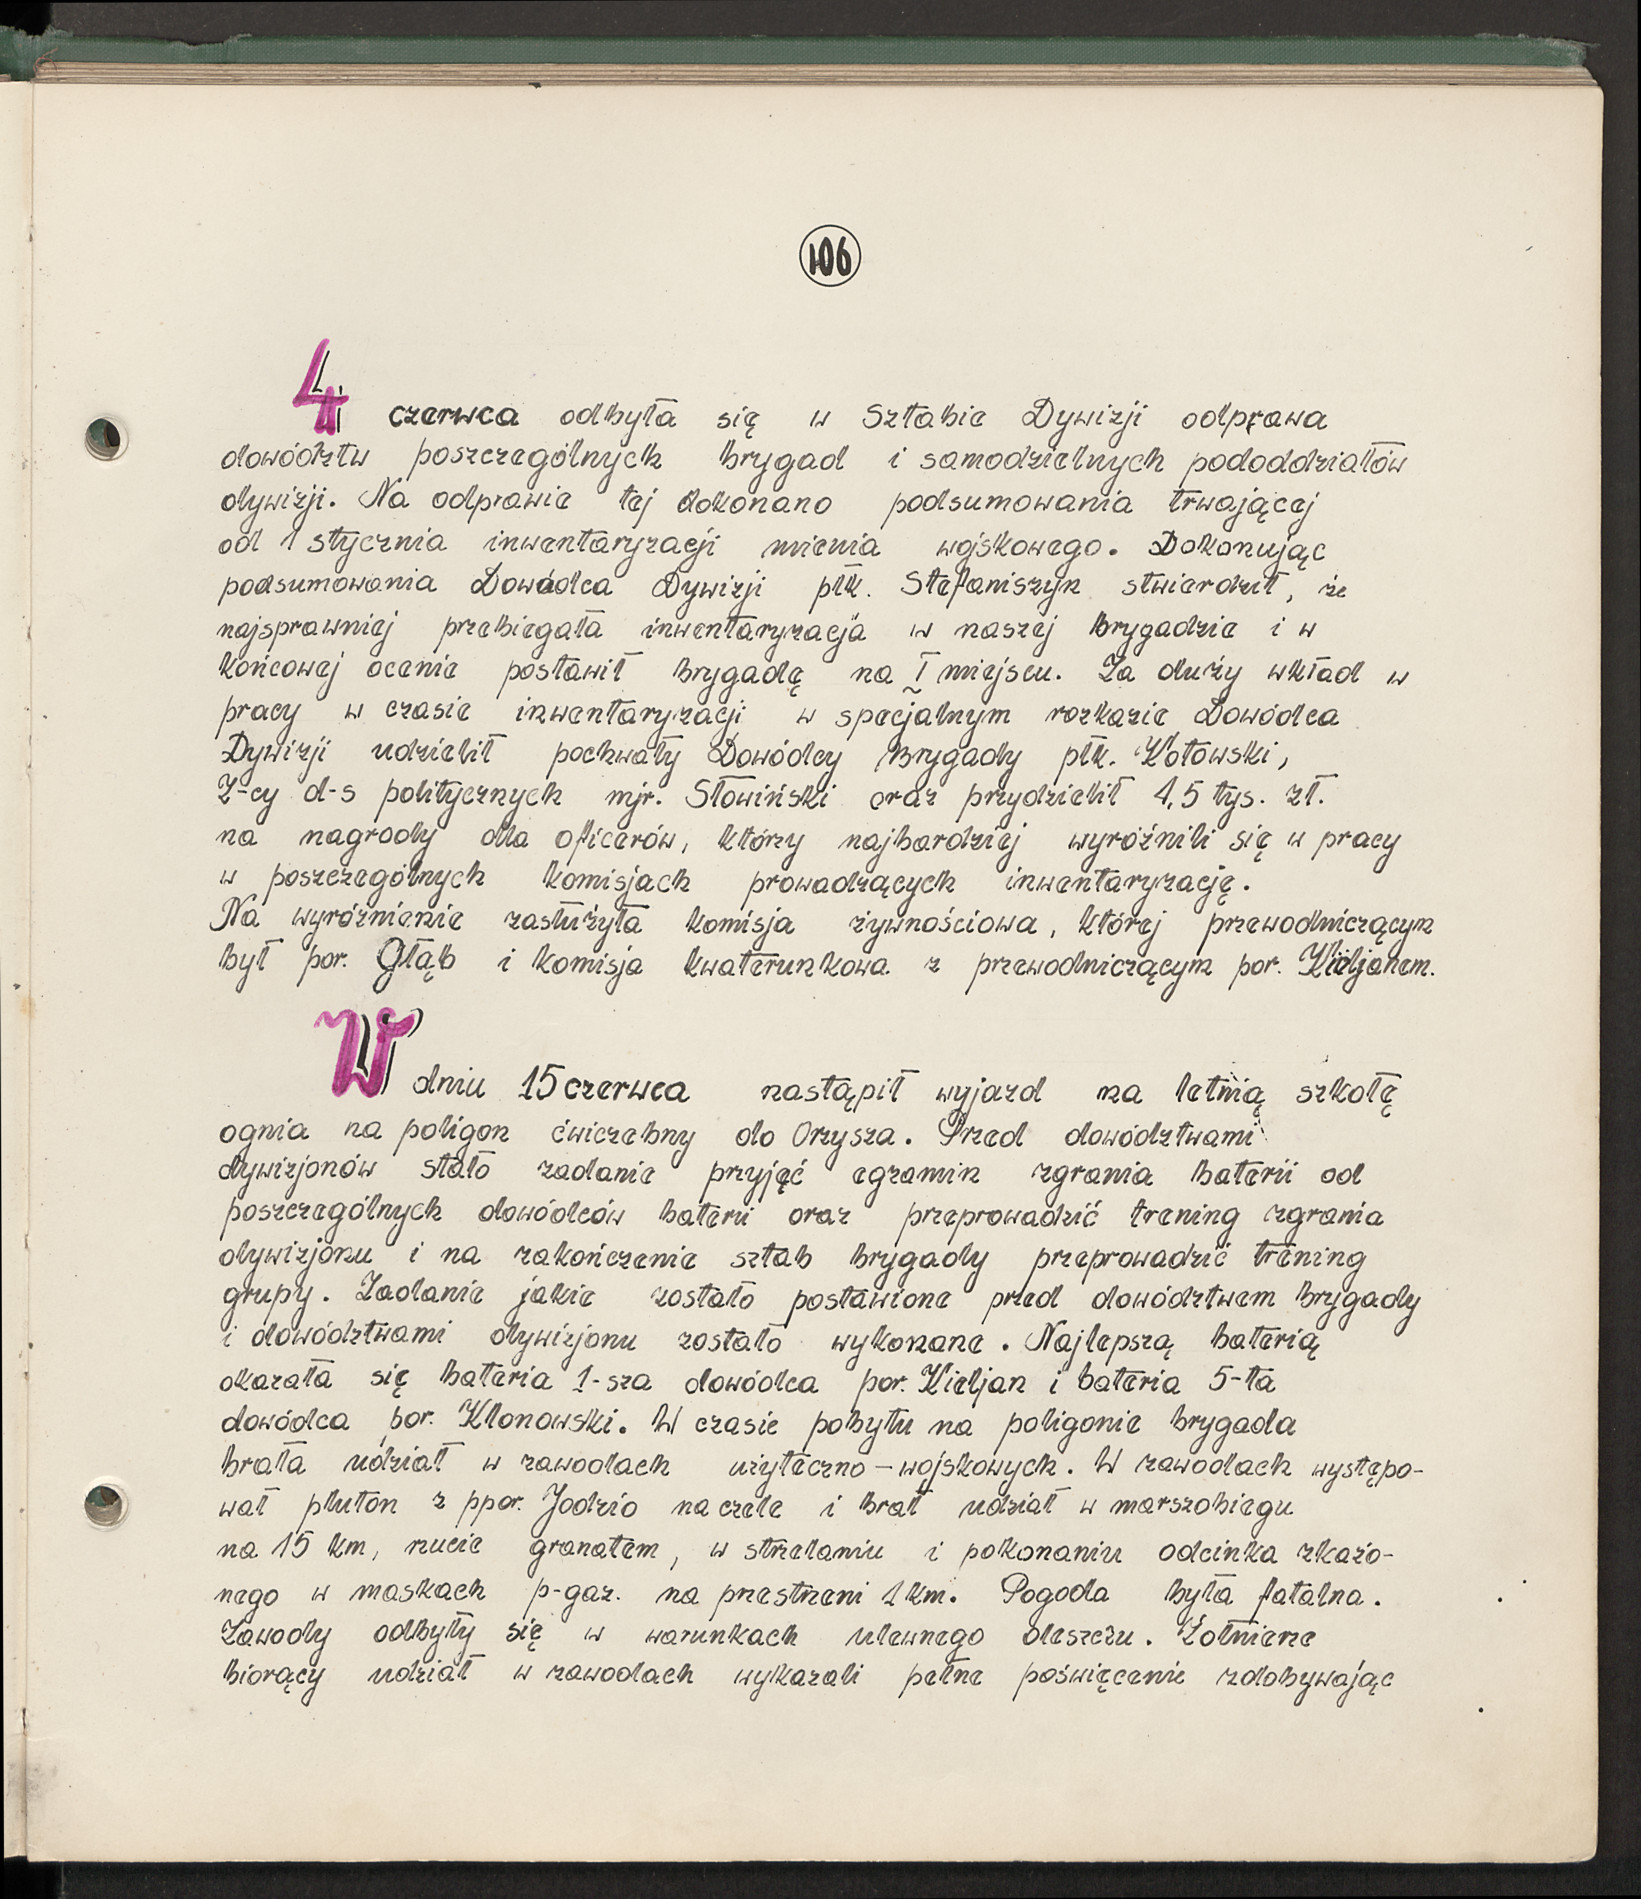 106
4 czerwca odbyła się w Sztabie Dywizji odprawa
dowództw poszczególnych brygad i samodzielnych pododdziałów
dywizji. Na odprawie tej dokonano podsumowania trwającej
od 1 stycznia inwentaryzacji mienia wojskowego. Dokonując
podsumowania Dowódca Dywizji płk. Stefaniszyn stwierdził, że
najsprawniej przebiegała inwentaryzacja w naszej Brygadzie i w
końcowej ocenie postawił brygadę na I miejscu. Za duży wkład w
pracy w czasie inwentaryzacji w specjalnym rozkazie Dowódca
Dywizji udzielił pochwały Dowódcy Brygady płk. Kotowski,
Z-cy d-s politycznych mjr. Słowiński oraz przydzielił 4,5 tys. zł.
na nagrody dla oficerów, którzy najbardziej wyróżnili się w pracy
w poszczególnych komisjach prowadzących inwentaryzację.
Na wyróżnienie zasłużyła komisja żywnościowa, której przewodniczącym
był por. Głąb i komisja kwaterunkowa z przewodniczącym por. Kieljanem.
W dniu 15 czerwca nastąpił wyjazd na letnią szkołę
ognia na poligon ćwiczebny do Orzysza. Przed dowództwami
dywizjonów stało zadanie przyjęć egzamin zgrania baterii od
poszczególnych dowódców baterii oraz przeprowadzić trening zgrania
dywizjonu i na zakończenie sztab brygady przeprowadzić trening
grupy. Zadanie jakie zostało postawione przed dowództwem Brygady
i dowództwami dywizjonu zostało wykonane. Najlepszą baterią
okazała się bateria 1-sza dowódca por. Kieljan i bateria 5-ta
dowódca por. Klonowski. W czasie pobytu na poligonie brygada
brała udział w zawodach użyteczno-wojskowych. W zawodach występo-
wał pluton z ppor. Jodzio na czele i brał udział w marszobiegu
na 15 km, rzucie granatem, w strzelaniu i pokonaniu odcinka skażo-
nego w maskach p-gaz. na przestrzeni 1 km. Pogoda była fatalna.
Zawody odbyły się w warunkach ulewnego deszczu. Żołnierze
biorący udział w zawodach wykazali pełne poświęcenie zdobywając